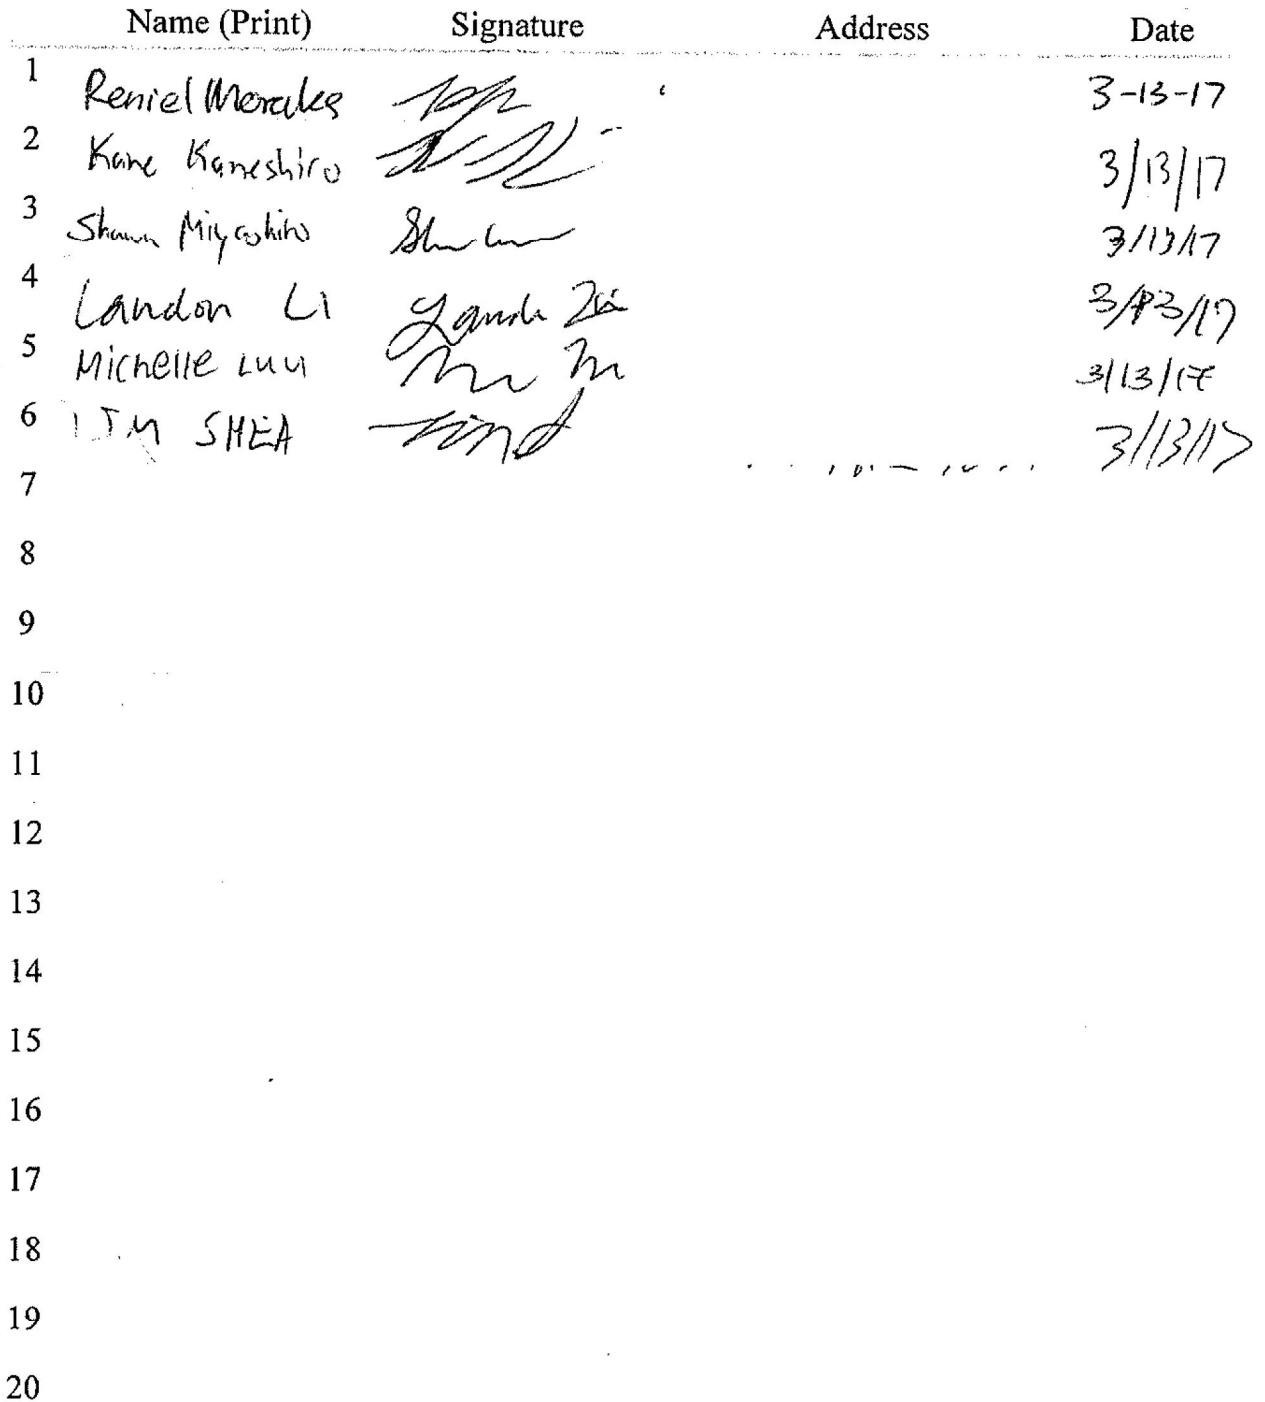 Name (Print) Signature Address Date
1 Reniel Morales 3-13-17
2 Kane Kaneshiro 3/13/17
3 Shawn Miyashiro 3/13/17
4 Landon Li 3/13/17
5 Michelle Luu 3/13/17
6 TIM SHEA 3/13/17
7
8
9
10
11
12
13
14
15
16
17
18
19
20